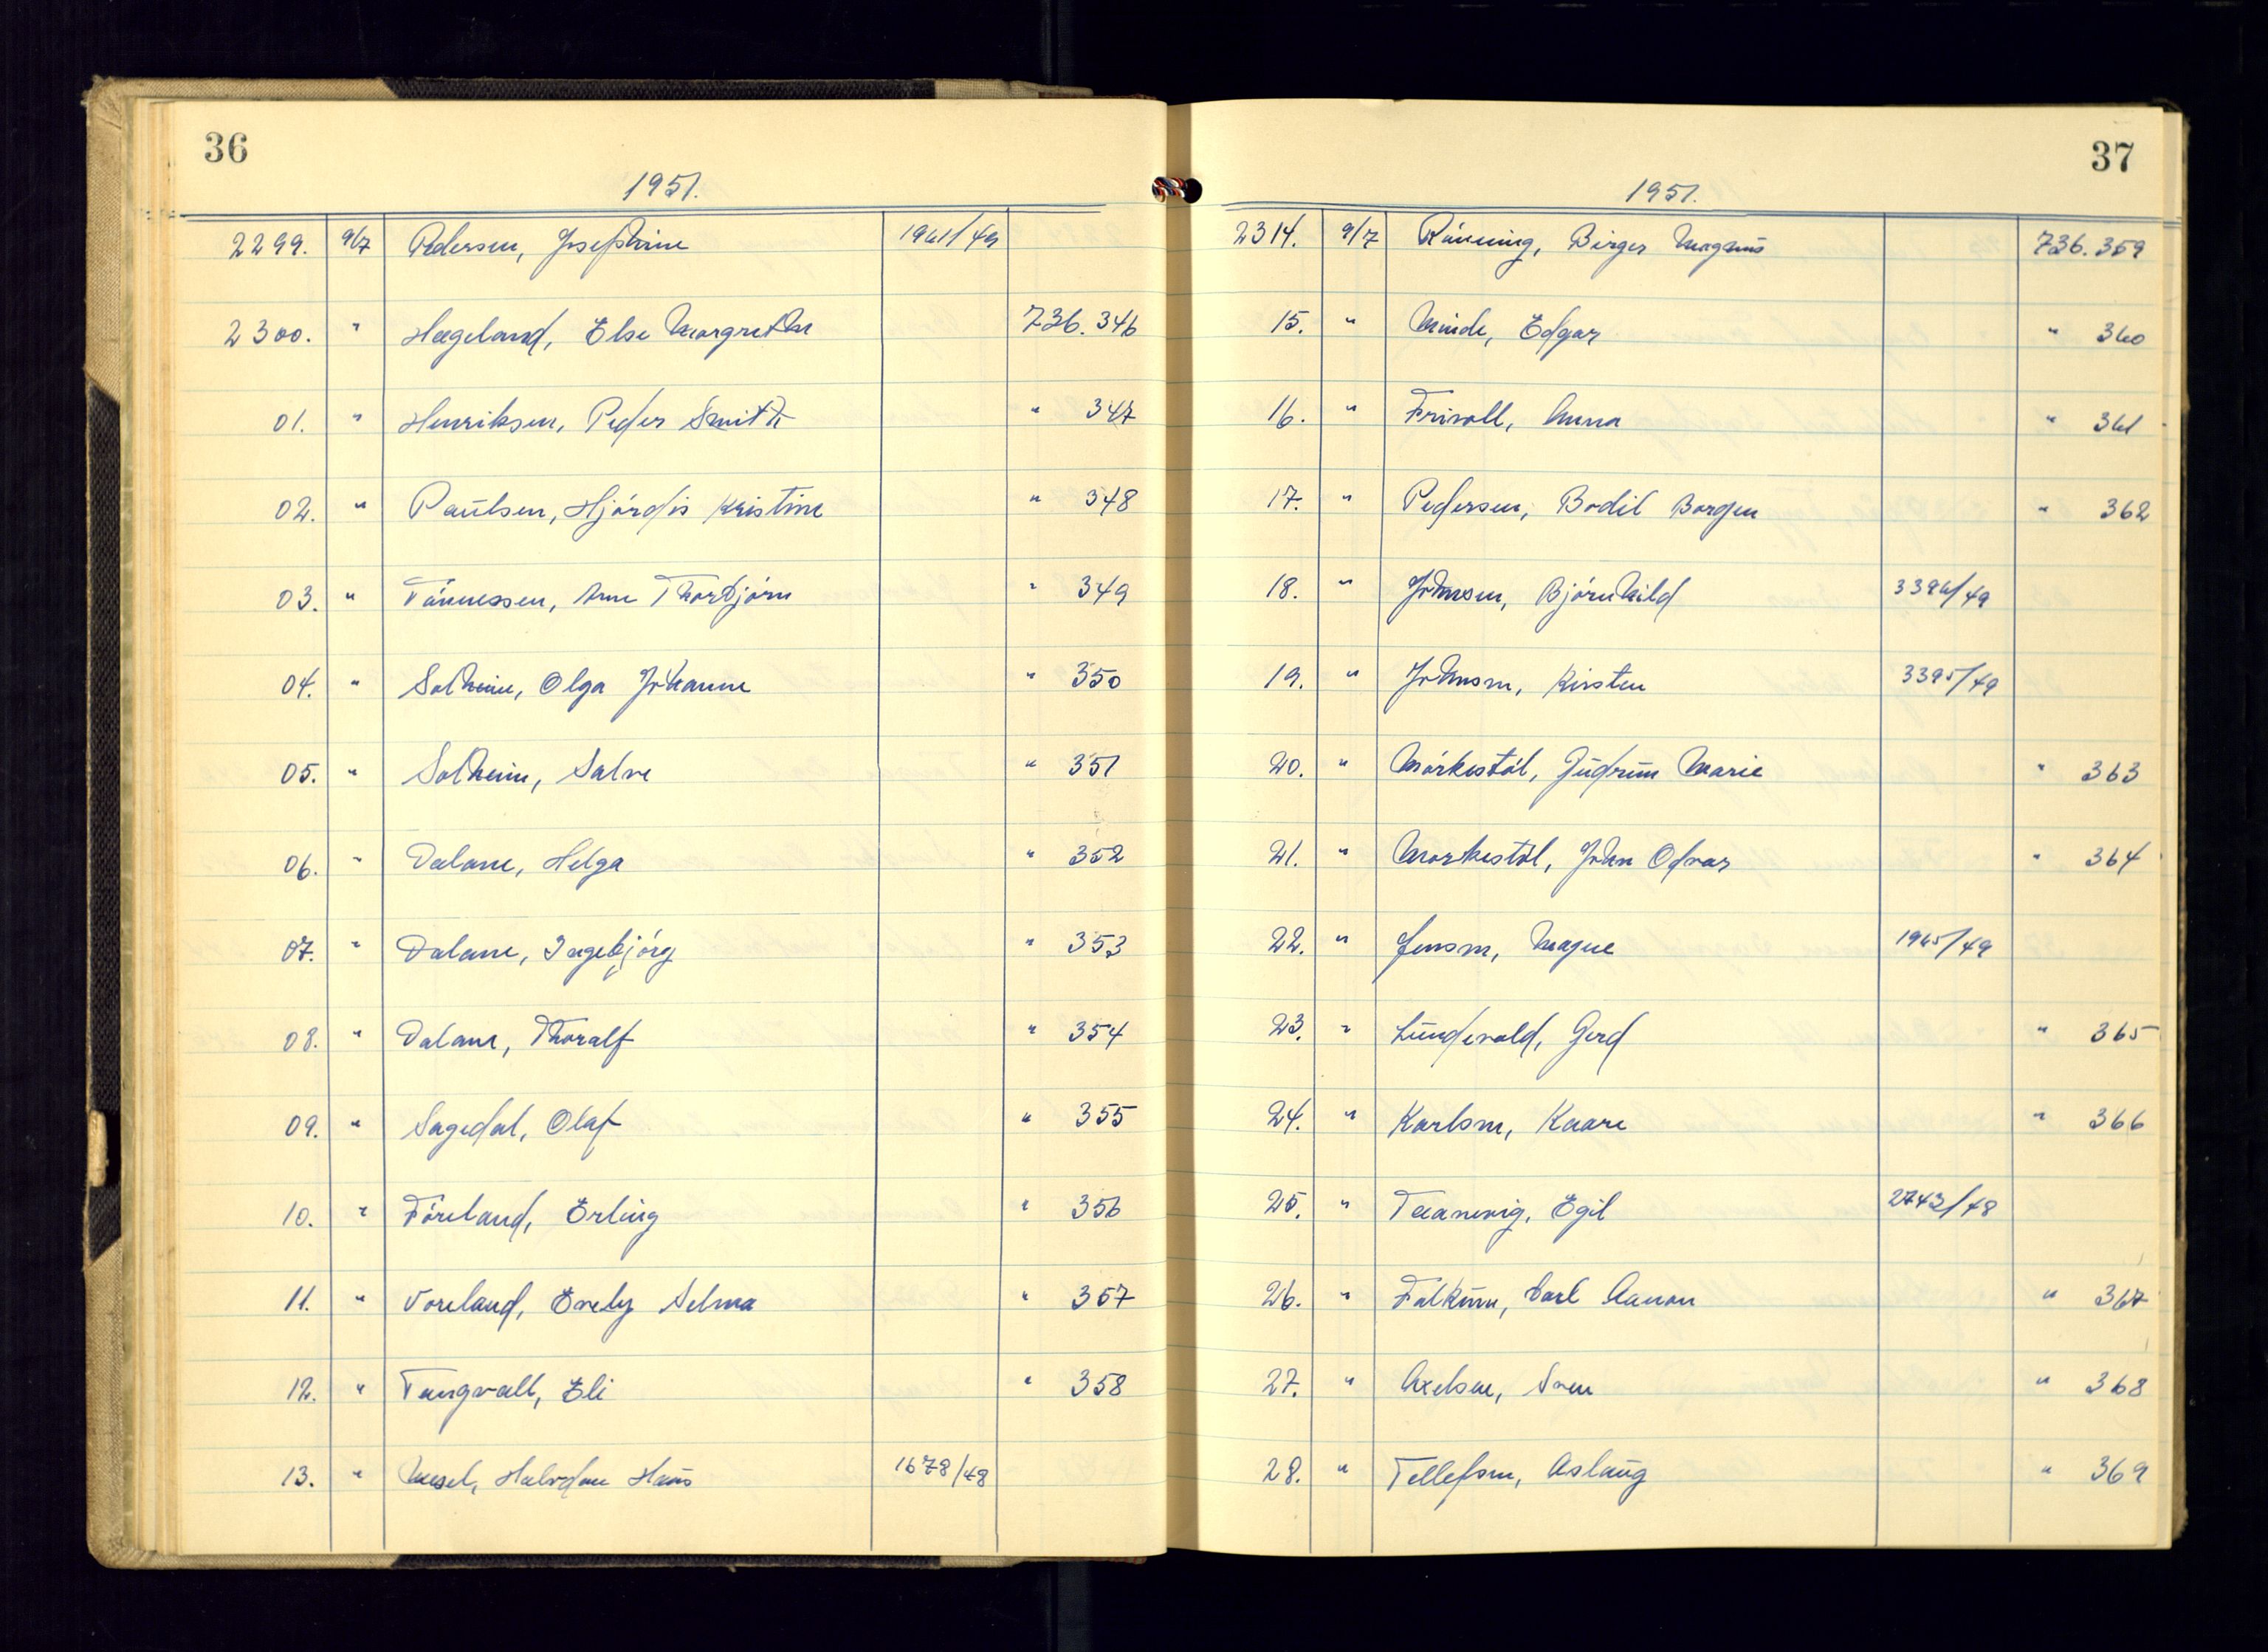 36
1951.
2299. 9/7 Pedersen, Josephine 1961/49
2300. " Hægeland, Else Margrethe 736.346
01. " Henriksen, Peder Smith " 347
02. " Paulsen, Hjördis Kristine " 348
03. " Tönnessen, Arne Thorbjörn " 349
04. " Solheim, Olga Johanne " 350
05. " Solheim, Salve " 351
06. " Dalane, Helga " 352
07. " Dalane, Ingebjörg " 353
08. " Dalane, Thoralf " 354
09. " Sagedal, Olaf " 355
10. " Föreland, Erling " 356
11. " Voreland, Evely Selma " 357
12. " Tangvall, Eli " 358
13. " Mesel, Halvdan Hans 1678/48
37
1951.
2314. 9/7 Rönning, Birger Magnus 736.359
15. " Minde, Edgar " 360
16. " Frivoll, Anna " 361
17. " Pedersen, Bodil Borgen " 362
18. " Johnsen, Björnhild 3396/49
19. " Johnsen, Kirsten 3395/49
20. " Mörkestöl, Gudrun Marie " 363
21. " Morkestöl, John Odvar " 364
22. " Jensen, Magne 1965/49
23. " Lundevold, Gerd " 365
24. " Karlsen, Kaare " 366
25. " Taanevig, Egil 2743/48
26. " Falkum, Carl Aanon " 367
27. " Axelsen, Sven " 368
28. " Tellefsen, Aslaug " 369